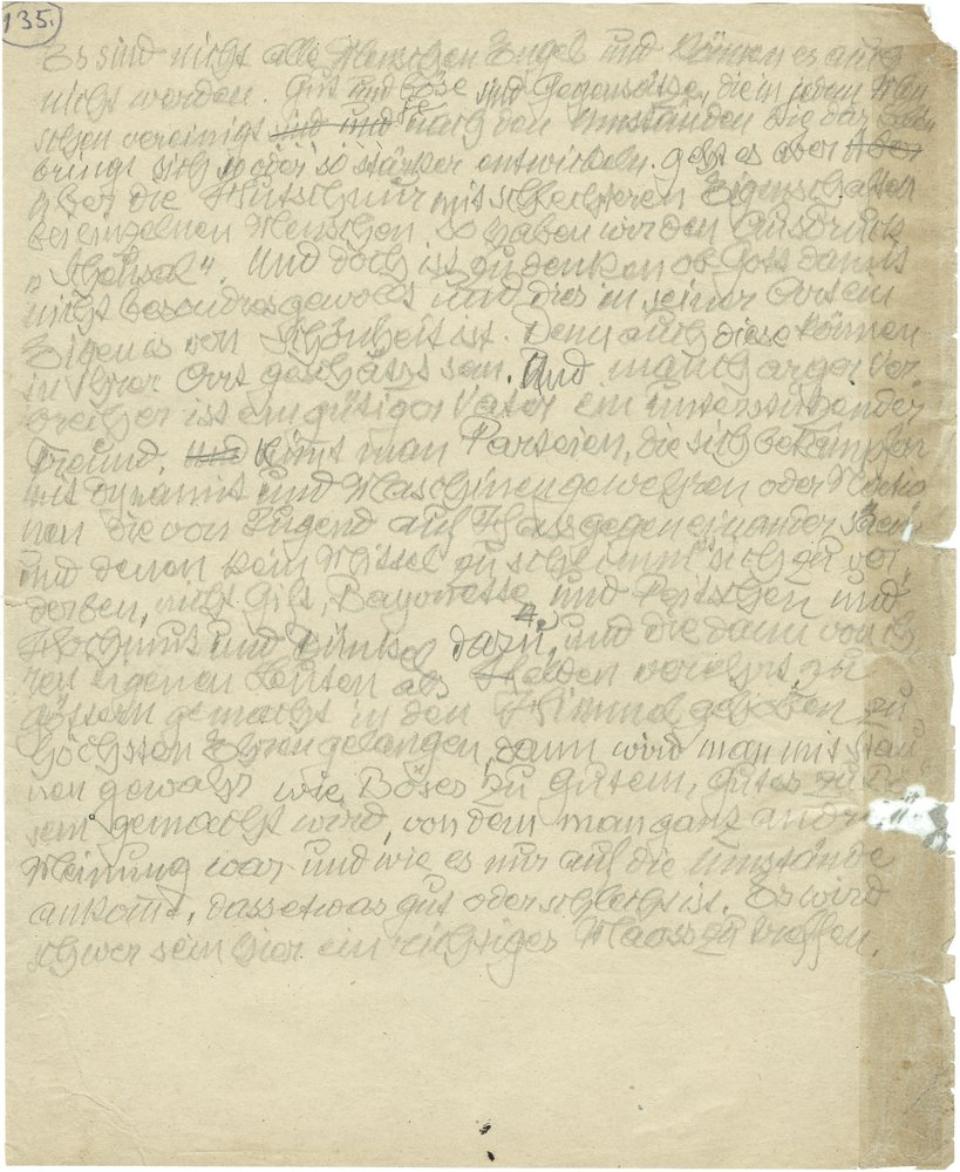 135.
Es sind nicht alle Menschen Engel und können es auch
nicht werden. Gut und böse sind Gegensätze, die in jedem Men
schen vereinigt sind und nach den Umständen die das Leben
bringt sich so oder so stärker entwickeln. geht es aber aber
über die Hutschnur mit schlechteren Eigenschaften
bei einzelnen Menschen so haben wir den Ausdruck
„Scheusal“. Und doch ist zu denken ob Gott damit
nicht besondres gewollt und dies in seiner Art ein
Eigenes von Schönheit ist. Denn auch diese können
in Ihrer Art geschätzt sein. Und manch arger Ver
brecher ist ein gütiger Vater ein unterstützender
Freund. Und nimt man Parteien, die sich bekämpfen
mit Dynamit und Maschinengewehren oder Natio
nen die von Jugend auf Hass gegeneinander säen
und denen kein Mittel zu schlimm sich zu ver
derben, nicht Gift, Bayonette und Peitschen und
Hochmut und Dünkel dazu, und die dann von ih
ren eigenen Leuten als Helden verehrt zu
göttern gemacht in den Himmel gehoben zu
höchsten Ehren gelangen, dann wird man mit Stau
nen gewahr wie Böses zu gutem, gutes zu Bö
sem gemacht wird, von dem man ganz andre
Meinung war und wie es nur auf die Umstände
ankomt, dass etwas gut oder schlecht ist. Es wird
schwer sein hier ein richtiges Maass zu treffen.